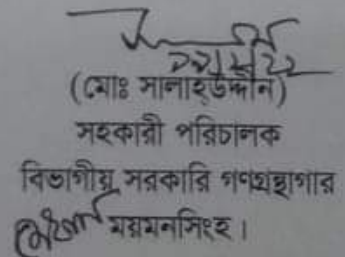 (মোঃ সালাহ্উদ্দীন)
সহকারী পরিচালক
বিভাগীয় সরকারি গণগ্রন্থাগার
ময়মনসিংহ।